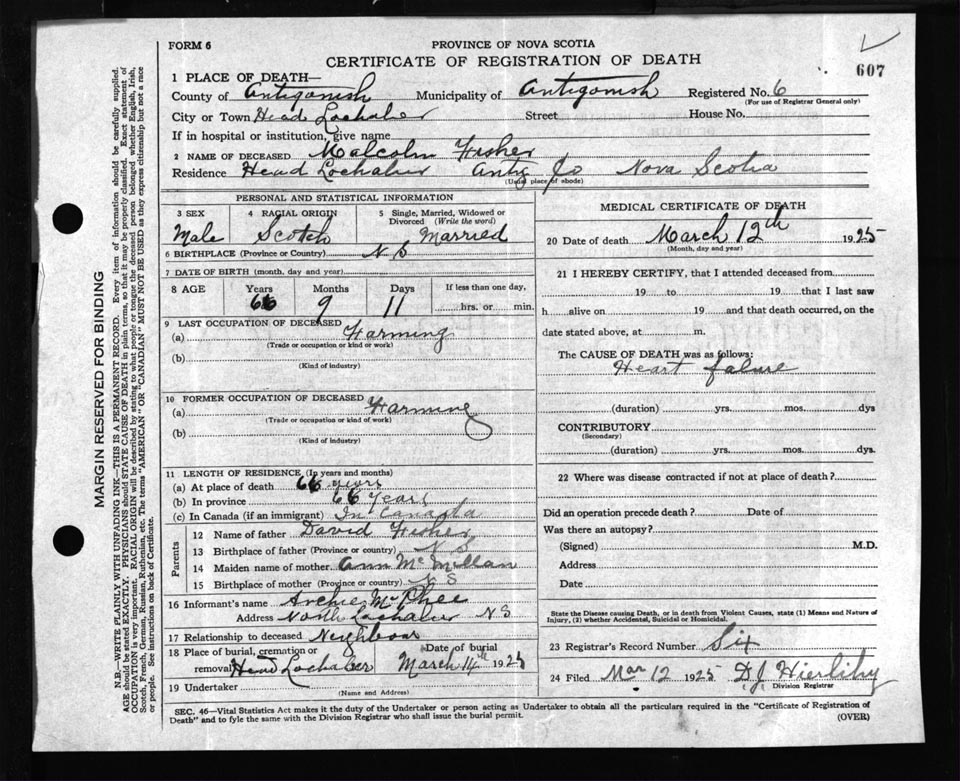 FORM 6
PROVINCE OF NOVA SCOTIA
CERTIFICATE OF REGISTRATION OF DEATH
607
1 PLACE OF DEATH—
County of Antigonish Municipality of Antigonish Registered No. 6
(For use of Registrar General only)
City or Town Head Lochaber Street House No.
If in hospital or institution, give name
2 NAME OF DECEASED Malcolm Fisher
Residence Head Lochaber Antig Co Nova Scotia
(Usual place of abode)
PERSONAL AND STATISTICAL INFORMATION
3 SEX 4 RACIAL ORIGIN 5 Single, Married, Widowed or Divorced (Write the word)
Male Scotch Married
6 BIRTHPLACE (Province or Country) N S
7 DATE OF BIRTH (month, day and year)
8 AGE Years Months Days If less than one day,
66 9 11 hrs. or min.
9 LAST OCCUPATION OF DECEASED
(a) Farming
(Trade or occupation or kind or work)
(b)
(Kind of industry)
10 FORMER OCCUPATION OF DECEASED
(a) Farming
(Trade or occupation or kind or work)
(b)
(Kind of industry)
11 LENGTH OF RESIDENCE (In years and months)
(a) At place of death 66 years
(b) In province 66 years
(c) In Canada (if an immigrant) In Canada
Parents
12 Name of father David Fisher
13 Birthplace of father (Province or country) N S
14 Maiden name of mother Ann McMillan
15 Birthplace of mother (Province or country) N S
16 Informant's name Archie McPhee
Address North Lochaber N S
17 Relationship to deceased Neighbour
18 Place of burial, cremation or removal Head Lochaber Date of burial March 14th 1925
19 Undertaker
(Name and Address)
MEDICAL CERTIFICATE OF DEATH
20 Date of death March 12th 1925
(Month, day and year)
21 I HEREBY CERTIFY, that I attended deceased from
19 to 19 that I last saw
h alive on 19 and that death occurred, on the
date stated above, at m.
The CAUSE OF DEATH was as follows:
Heart falure
(duration) yrs. mos. dys
CONTRIBUTORY
(Secondary)
(duration) yrs. mos. dys.
22 Where was disease contracted if not at place of death?
Did an operation precede death? Date of
Was there an autopsy?
(Signed) M.D.
Address
Date
State the Disease causing Death, or in death from Violent Causes, state (1) Means and Nature of
Injury, (2) whether Accidental, Suicidal or Homicidal.
23 Registrar's Record Number Six
24 Filed Mar 12 1925 D J Hierlihy
Division Registrar
SEC. 46—Vital Statistics Act makes it the duty of the Undertaker or person acting as Undertaker to obtain all the particulars required in the "Certificate of Registration of
Death" and to fyle the same with the Division Registrar who shall issue the burial permit.
(OVER)
MARGIN RESERVED FOR BINDING
N.B.—WRITE PLAINLY WITH UNFADING INK—THIS IS A PERMANENT RECORD. Every item of information should be carefully supplied.
AGE should be stated EXACTLY. PHYSICIANS should STATE CAUSE OF DEATH in plain terms, so that it may be properly classified. Exact statement of
OCCUPATION is very important. RACIAL ORIGIN will be described by stating to what people or tongue the deceased person belonged whether English, Irish,
Scotch, French, German, Russian, Ruthenian, etc. The terms "AMERICAN" or "CANADIAN" MUST NOT BE USED as they express citizenship but not a race
or people. See instructions on back of Certificate.